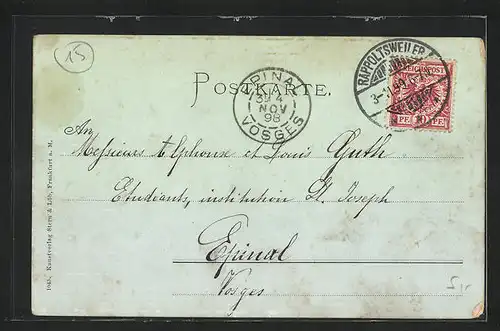 15
POSTKARTE.
EPINAL
4
NOV
98
VOSGES
RAPPOLTSWEILER
REICHSPOST
PF 10 PF
An
Messieurs Alphonse et Louis Guth
Etudiants, institution St. Joseph
Epinal
Vosges
Kunstverlag Stern & Löb, Frankfurt a. M.